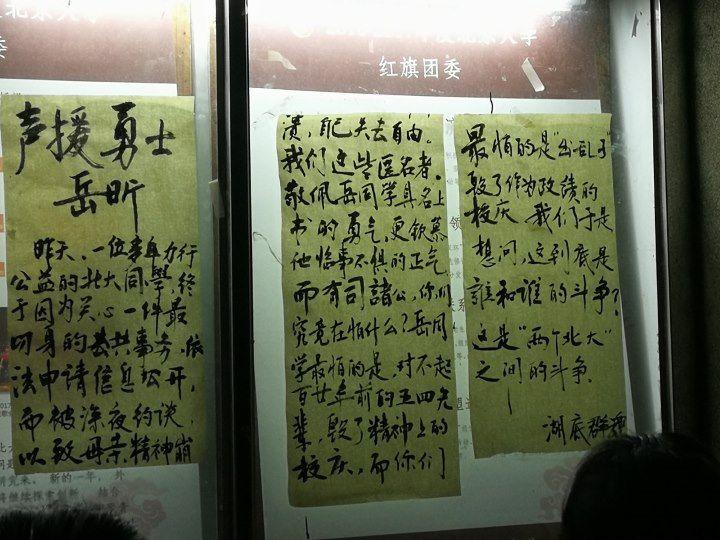 北京大学
红旗团委
声援勇士
岳昕
昨天，一位年年力行
公益的北大同學，终
于因为关心一件最
切身的公共事务，依
法申请信息公开，
而被深夜约谈，
以致母亲精神崩
溃，自己失去自由。
我们这些匿名者，
敬佩岳同学具名上
书的勇气，更钦慕
他临事不惧的正气。
而有司諸公，你们
究竟在怕什么？岳同
学最怕的是，对不起
百廿年前的五四先
辈，毁了精神上的
校庆，而你们
最怕的是“出乱子”
毁了作为政绩的
校庆。我们于是
想问，这到底是
谁和谁的斗争？
这是“两个北大”
之间的斗争。
湖底群